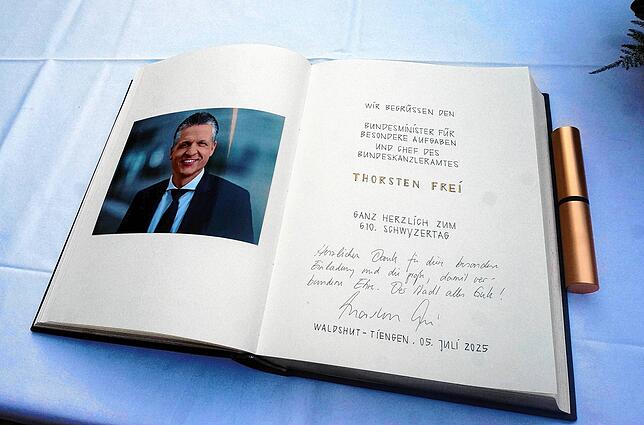 WIR BEGRÜSSEN DEN
BUNDESMINISTER FÜR
BESONDERE AUFGABEN
UND CHEF DES
BUNDESKANZLERAMTES
THORSTEN FREI
GANZ HERZLICH ZUM
610. SCHWYZERTAG
Herzlichen Dank für diese besondere
Einladung und die große, damit ver-
bundene Ehre. Der Stadt alles Gute!
WALDSHUT-TIENGEN, 05. JULI 2025